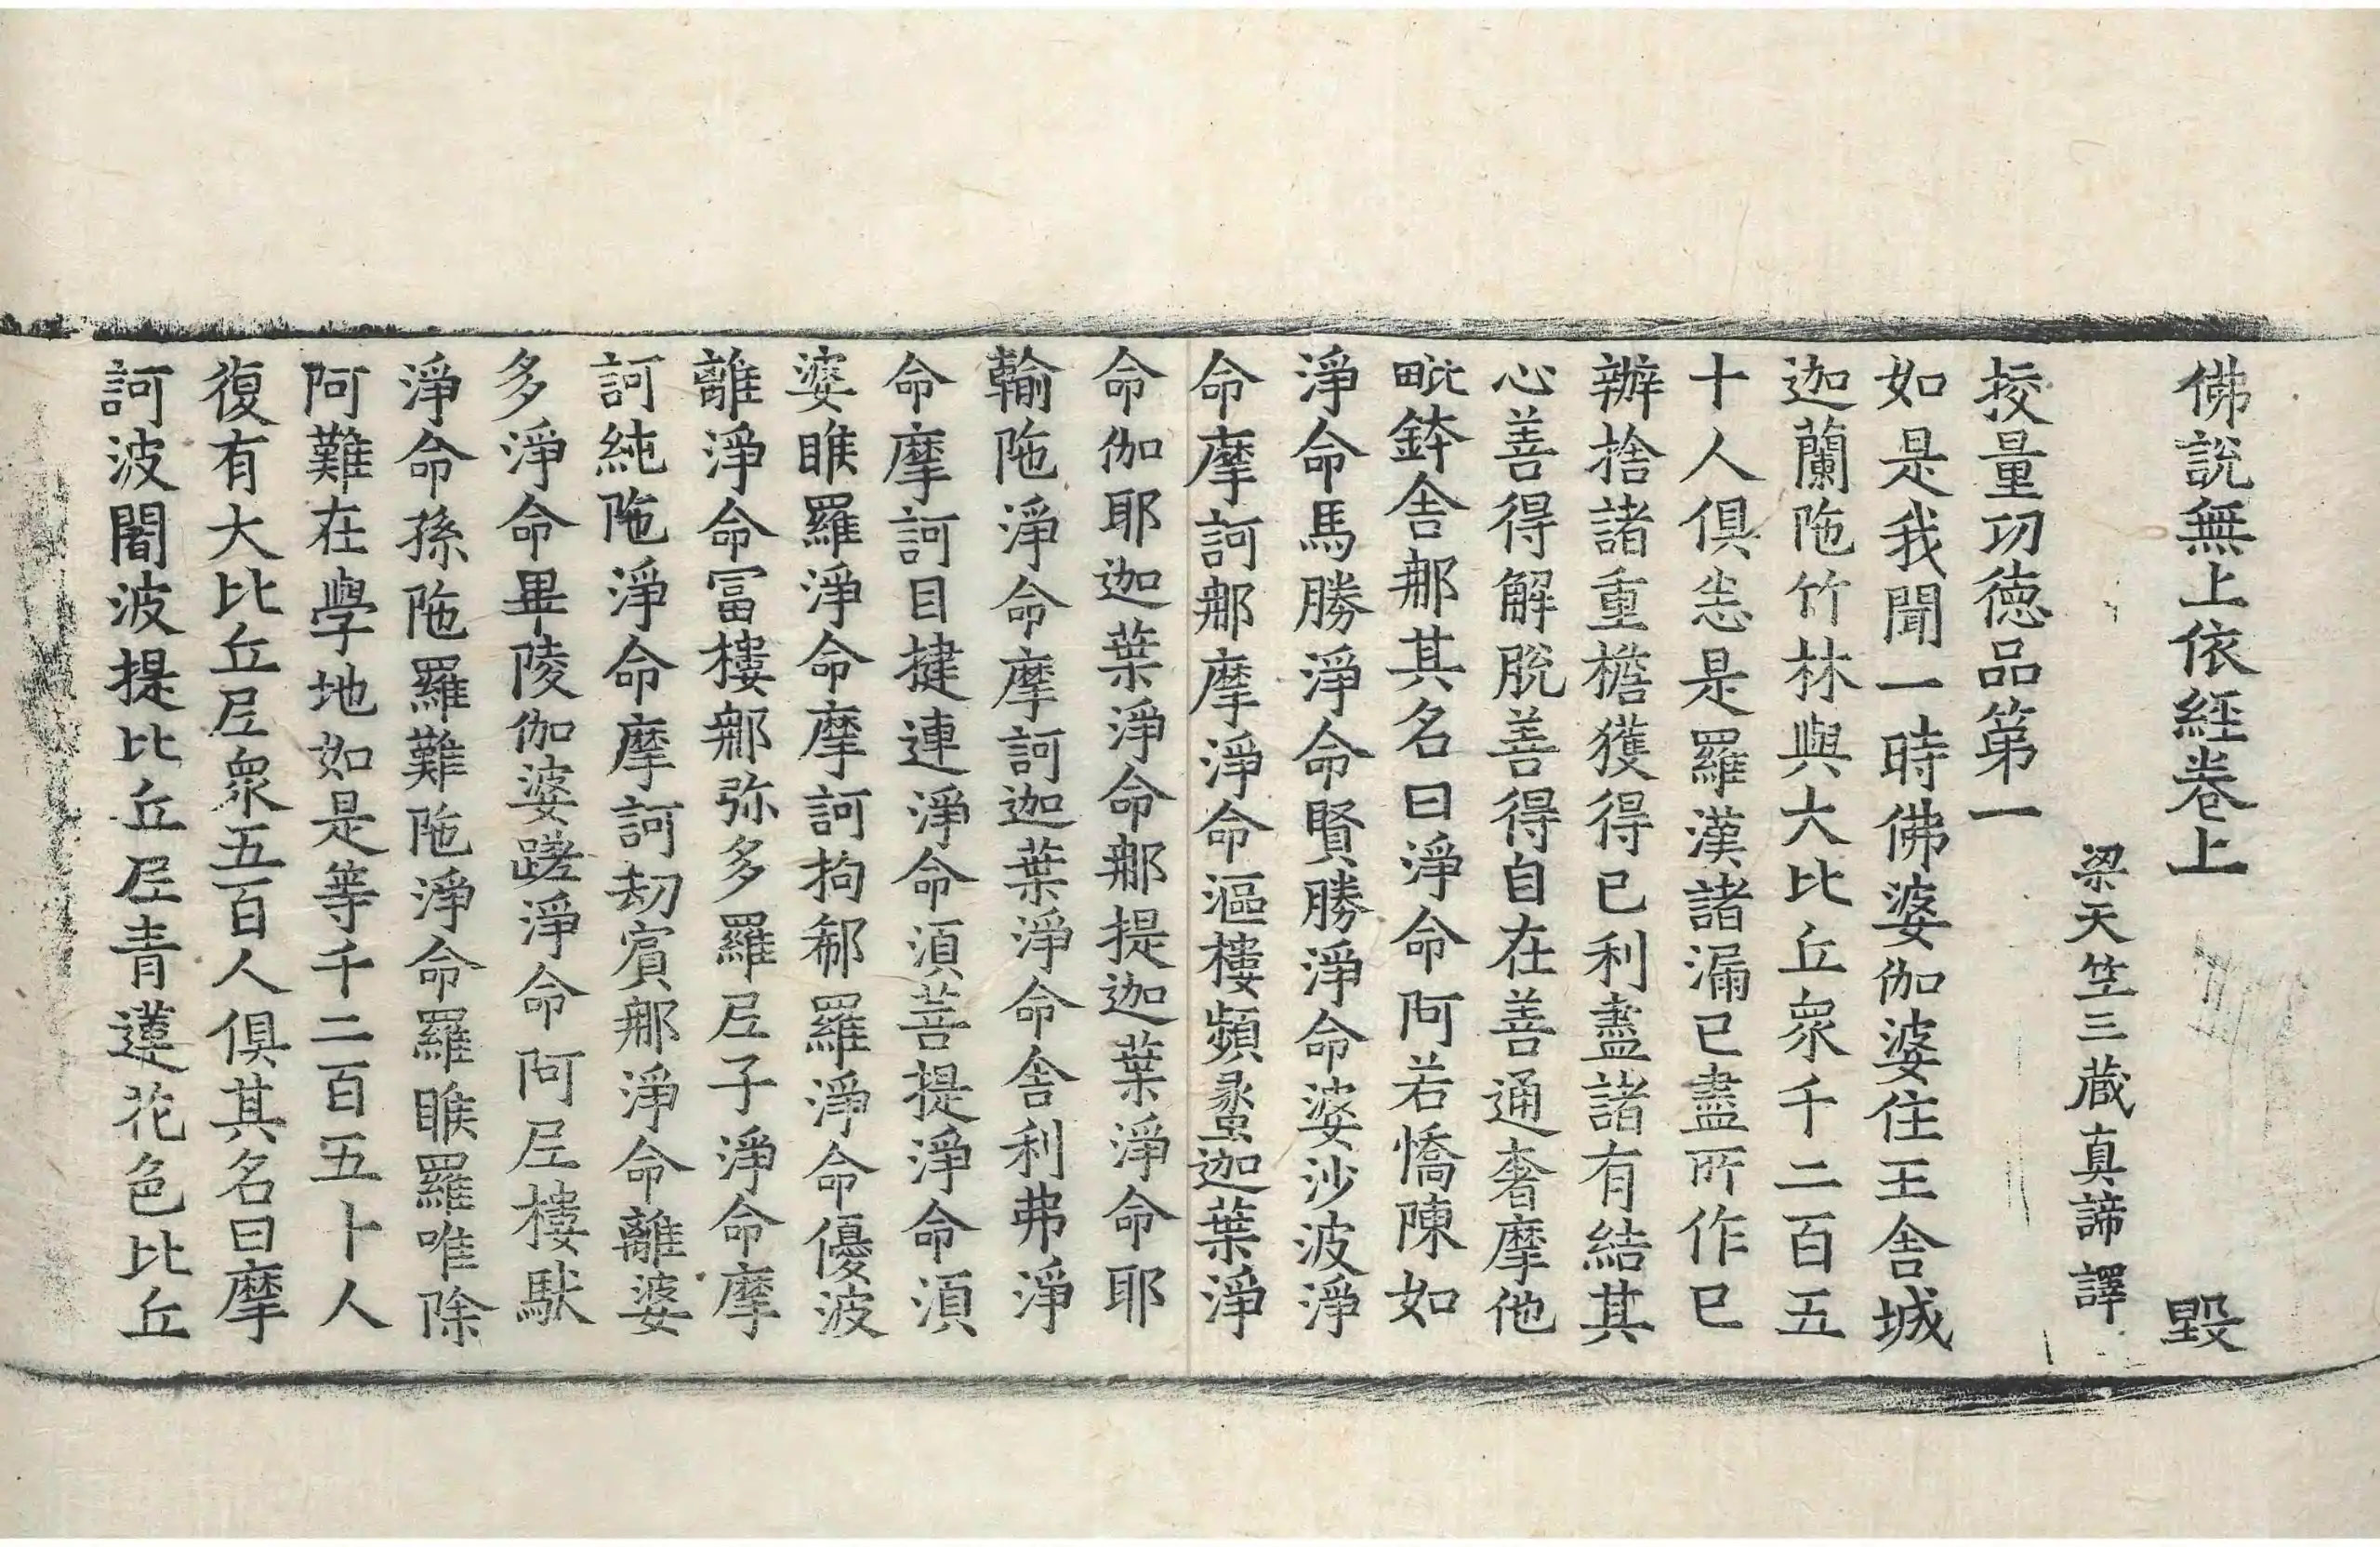 佛說無上依經卷上 毀
梁天竺三藏真諦譯
挍量功德品第一
如是我聞一時佛婆伽婆住王舍城
迦蘭陁竹林與大比丘衆千二百五
十人俱悉是羅漢諸漏已盡所作已
辦捨諸重檐獲得已利盡諸有結其
心善得解脫善得自在善通奢摩他
毗鉢舍那其名曰淨命阿若憍陳如
淨命馬勝淨命賢勝淨命婆沙波淨
命摩訶那摩淨命漚樓頻蠡迦葉淨
命伽耶迦葉淨命那提迦葉淨命耶
輸陁淨命摩訶迦葉淨命舍利弗淨
命摩訶目揵連淨命湏菩提淨命湏
婆睺羅淨命摩訶拘郗羅淨命優波
離淨命冨樓那弥多羅尼子淨命摩
訶純陁淨命摩訶劫賔那淨命離婆
多淨命畢陵伽婆蹉淨命阿尼樓馱
淨命孫陁羅難陁淨命羅睺羅唯除
阿難在學地如是等千二百五十人
復有大比丘尼衆五百人俱其名曰摩
訶波闍波提比丘尼青蓮花色比丘